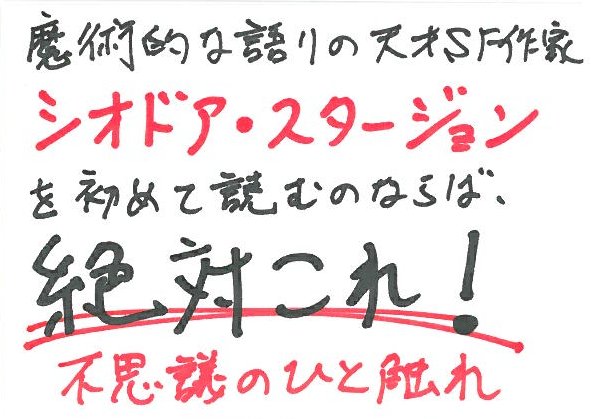 魔術的な語りの天才SF作家
シオドア・スタージョン
を初めて読むのならば、
絶対これ!
不思議のひと触れ